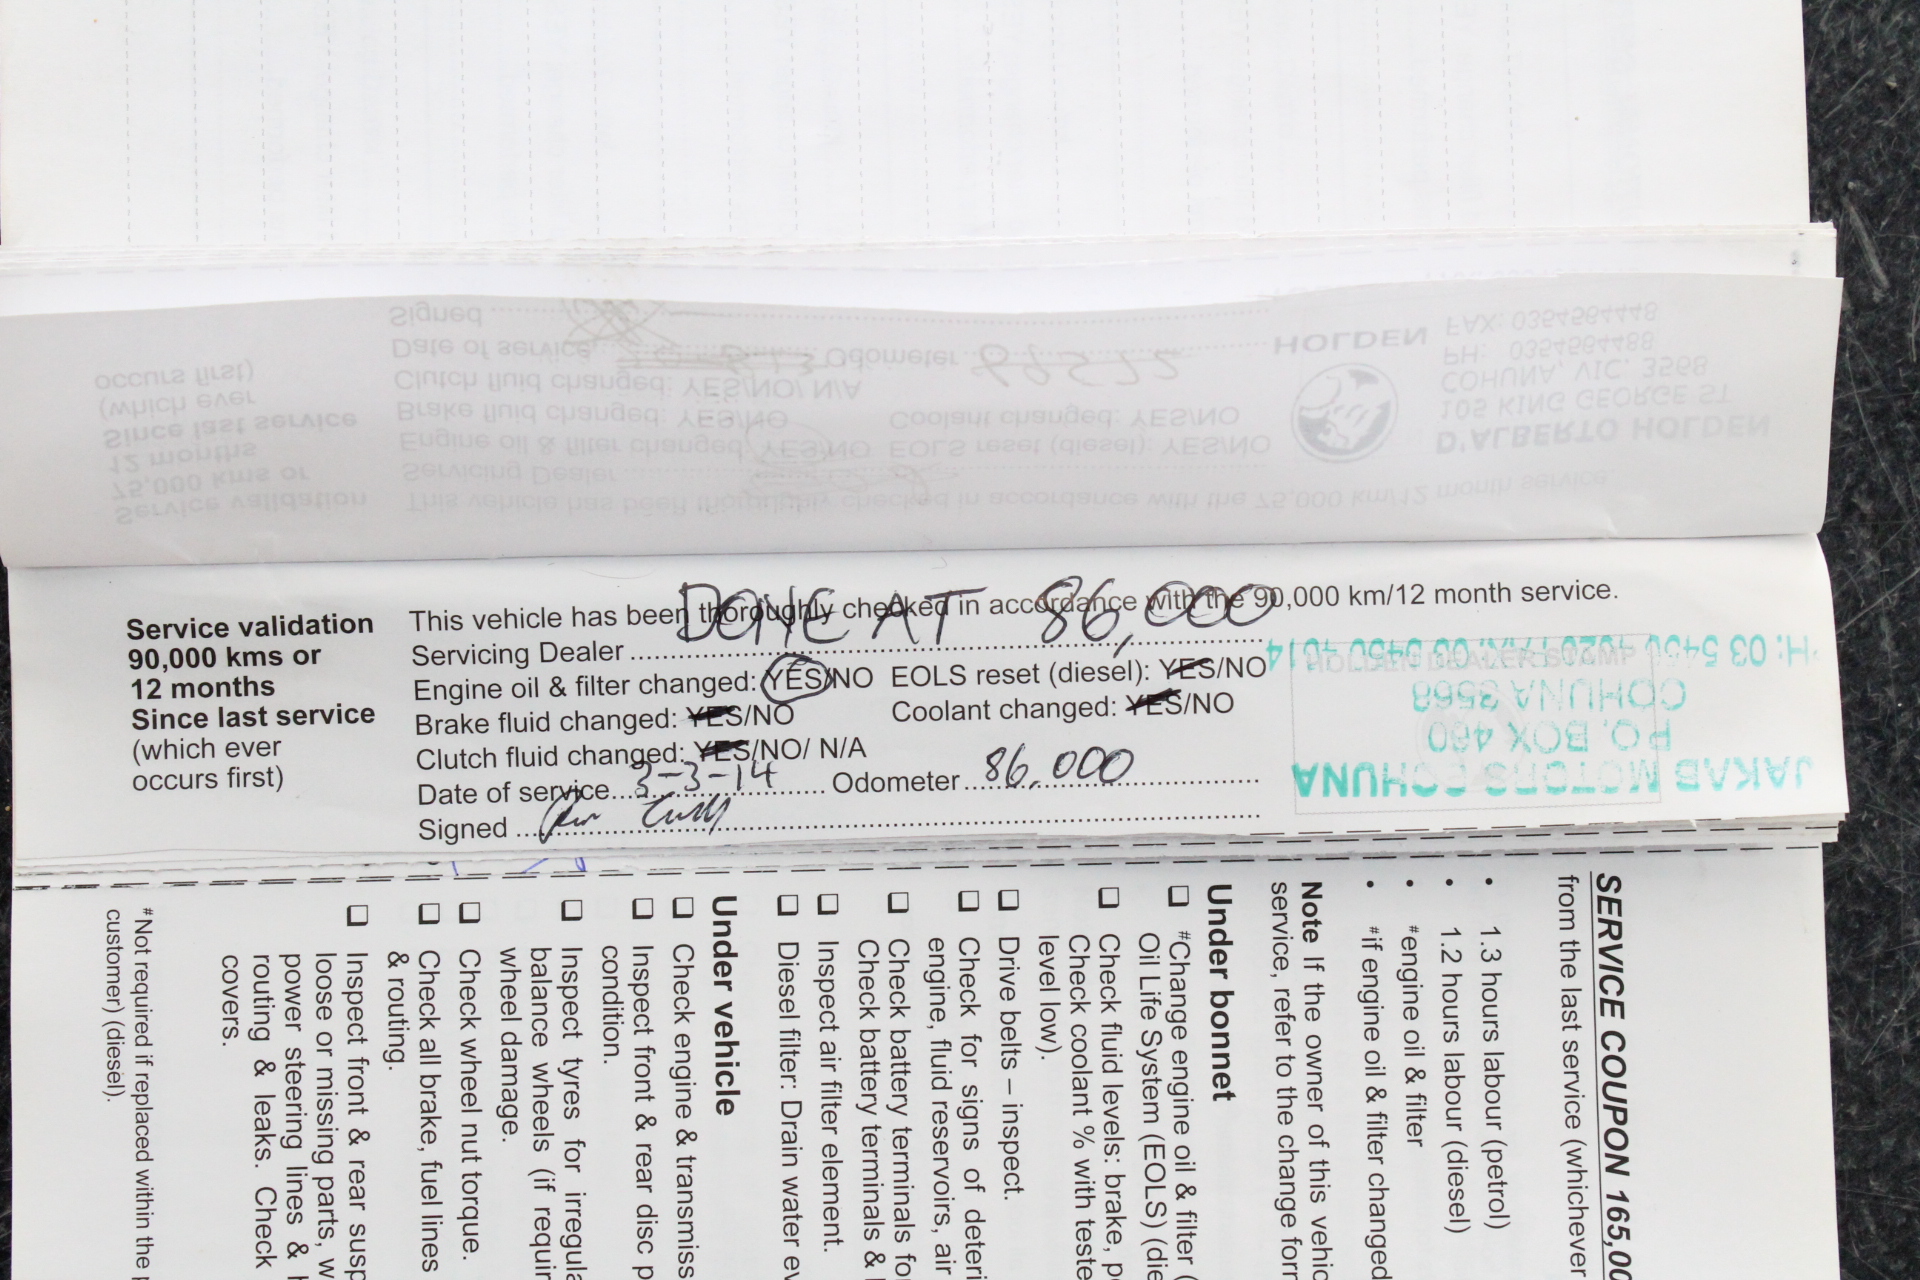 Signed
Date of service Odometer 68522
Clutch fluid changed: YES/NO/ N/A
Brake fluid changed: YES/NO Coolant changed: YES/NO
Engine oil & filter changed: YES/NO EOLS reset (diesel): YES/NO
Servicing Dealer
This vehicle has been thoroughly checked in accordance with the 75,000 km/12 month service.
Service validation
75,000 kms or
12 months
Since last service
(which ever
occurs first)
HOLDEN
D'ALBERTO HOLDEN
105 KING GEORGE ST
COHUNA, VIC. 3568
PH: 0354564488
FAX: 0354564448
Service validation
90,000 kms or
12 months
Since last service
(which ever
occurs first)
DONE AT 86,000
This vehicle has been thoroughly checked in accordance with the 90,000 km/12 month service.
Servicing Dealer
Engine oil & filter changed: YES/NO EOLS reset (diesel): YES/NO
Brake fluid changed: YES/NO Coolant changed: YES/NO
Clutch fluid changed: YES/NO/ N/A
Date of service 3-3-14 Odometer 86,000
Signed
HOLDEN DEALER STAMP
JAKAB MOTORS COHUNA
P.O. BOX 460
COHUNA 3568
SERVICE COUPON 165,00
from the last service (whichever
• 1.3 hours labour (petrol)
• 1.2 hours labour (diesel)
• #engine oil & filter
• #if engine oil & filter changed
Note If the owner of this vehic
service, refer to the change form
Under bonnet
❑ #Change engine oil & filter (
Oil Life System (EOLS) (die
❑ Check fluid levels: brake, po
Check coolant % with teste
level low).
❑ Drive belts – inspect.
❑ Check for signs of deteri
engine, fluid reservoirs, air
❑ Check battery terminals fo
Check battery terminals &
❑ Inspect air filter element.
❑ Diesel filter: Drain water ev
Under vehicle
❑ Check engine & transmiss
❑ Inspect front & rear disc p
condition.
❑ Inspect tyres for irregula
balance wheels (if requir
wheel damage.
❑ Check wheel nut torque.
❑ Check all brake, fuel lines
& routing.
❑ Inspect front & rear susp
loose or missing parts, w
power steering lines &
routing & leaks. Check
covers.
#Not required if replaced within the
customer) (diesel).